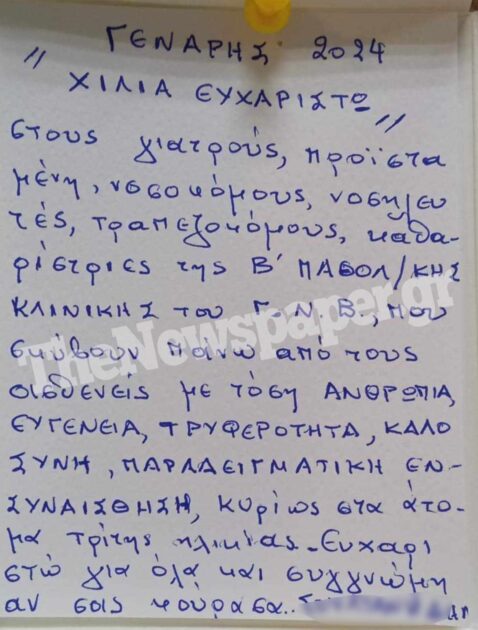 ΓΕΝΑΡΗΣ 2024
" ΧΙΛΙΑ ΕΥΧΑΡΙΣΤΩ "
στους γιατρούς, προϊστα
μένη, νοσοκόμους, νοσηλευ
τές, τραπεζοκόμους, καθα-
ρίστριες της Β' ΠΑΘΟΛ/ΚΗΣ
ΚΛΙΝΙΚΗΣ του Γ.Ν.Β., που
σκύβουν πάνω από τους
ασθενείς με τόση ΑΝΘΡΩΠΙΑ,
ΕΥΓΕΝΕΙΑ, ΤΡΥΦΕΡΟΤΗΤΑ, ΚΑΛΟ
ΣΥΝΗ, ΠΑΡΑΔΕΙΓΜΑΤΙΚΗ ΕΝ-
ΣΥΝΑΙΣΘΗΣΗ, κυρίως στα άτο-
μα τρίτης ηλικίας - Ευχαρι
στώ για όλα και συγγνώμη
αν σας κούρασα..
TheNewspaper.gr